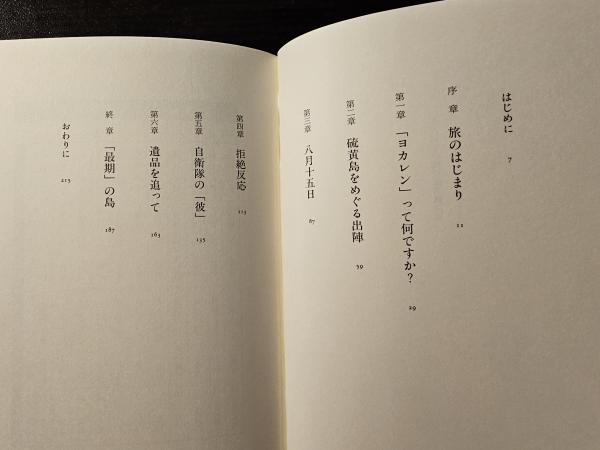 はじめに 7
序章 旅のはじまり 11
第一章 「ヨカレン」って何ですか? 29
第二章 硫黄島をめぐる出陣 59
第三章 八月十五日 87
第四章 拒絶反応 113
第五章 自衛隊の「彼」 135
第六章 遺品を追って 163
終章 「最期」の島 187
おわりに 213